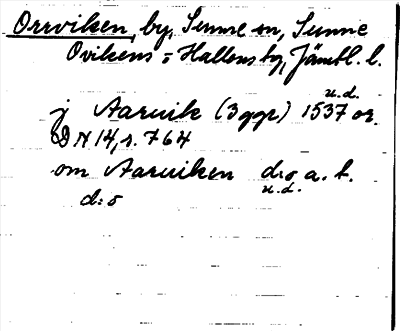 Orrviken, by, Sunne sn, Sunne
Ovikens o Hallens tg, Jämtl. l.
j Aarvik (3 ggr) 1537 u.d. or.
DN 14, s. 764
om Aarviken d:o a. st.
d:o u.d.